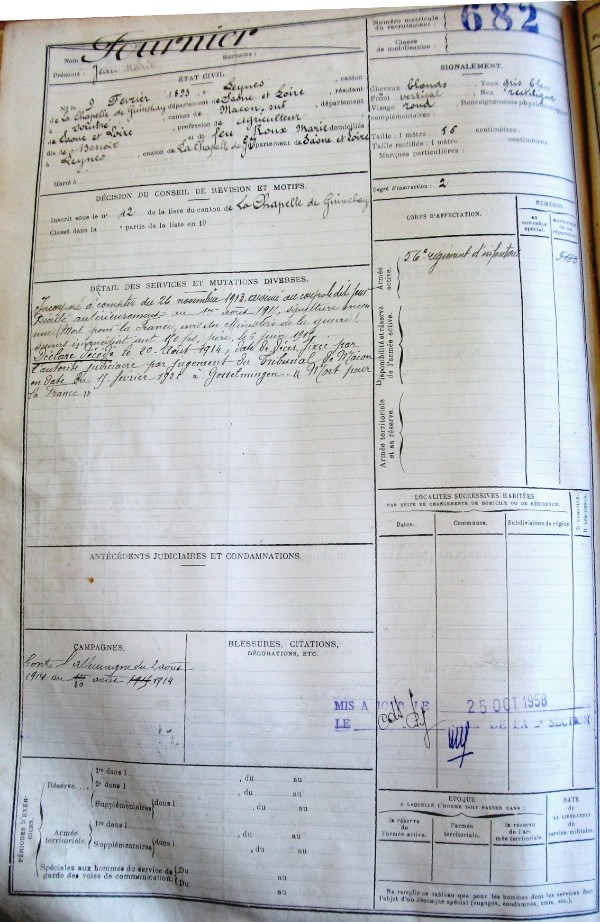 Nom Fournier
Prénoms : Jean Marie Surnoms :
Numéro matricule
du recrutement : 682
Classe
de mobilisation :
ÉTAT CIVIL.
Né le 9 Février 1893, à Leynes, canton
de La Chapelle de Guinchay, département de Saône et Loire, résidant
à Vinzelles, canton de Macon, sud, département
de Saône et Loire, profession de agriculteur
fils de Benoit et de feu Roux Marie domiciliés
à Leynes, canton de La Chapelle de G. département de Saône et Loire
Marié à
SIGNALEMENT.
Cheveux blonds Yeux gris bleu
Front vertical Nez rectiligne
Visage rond Renseignements physionomiques
complémentaires :
Taille : 1 mètre 56 centimètres.
Taille rectifiée : 1 mètre centimètres.
Marques particulières :
Degré d'instruction : 2
DÉCISION DU CONSEIL DE REVISION ET MOTIFS.
Inscrit sous le n° 12 de la liste du canton de La Chapelle de Guinchay
Classé dans la partie de la liste en 19
CORPS D'AFFECTATION.
NUMÉROS
au
contrôle
spécial.
Armée
active.
56e régiment d'infanterie
Disponibilité et réserve
de l'armée active.
Armée territoriale
et sa réserve.
DÉTAIL DES SERVICES ET MUTATIONS DIVERSES.
Incorporé à compter du 26 novembre 1913
Décédé antérieurement au 1er août 1917, sépulture incon
nue (Mort pour la France, avis du Ministère de la guerre)
secours immédiat de 150 fs, père, le 5 juin
Déclaré décédé le 20 Août 1914, date de décès fixée par
l'autorité judiciaire par jugement du Tribunal de Macon
en date du février à Gosselmingen. "Mort pour
la France"
LOCALITÉS SUCCESSIVES HABITÉES
PAR SUITE DE CHANGEMENTS DE DOMICILE OU DE RÉSIDENCE.
Dates. Communes. Subdivisions de région
D. DOMICILE.
R. RÉSIDENCE.
ANTÉCÉDENTS JUDICIAIRES ET CONDAMNATIONS.
CAMPAGNES.
Contre l'allemagne du 2 aout
1914 au 20 1914
BLESSURES, CITATIONS,
DÉCORATIONS, ETC.
MIS A JOUR LE 25 OCT 1958
LE DE LA SECTION
PÉRIODES D'EXERCICES.
Réserve....
1re dans l , du au
2e dans l , du au
Supplémentaires dans l , du au
, du au
Armée
territoriale.
1re dans l , du au
Supplémentaires dans l , du au
, du au
Spéciales aux hommes du service de
garde des voies de communication.
Du au
Du au
EPOQUE
A LAQUELLE L'HOMME DOIT PASSER DANS :
la réserve
de
l'armée active.
l'armée
territoriale.
la réserve
de l'ar-
mée territoriale.
DATE
de
LA LIBÉRATION
du
service militaire.
Ne remplir ce tableau que pour les hommes dont les services font
l'objet d'un décompte spécial (engagés, condamnés, omis, etc.).